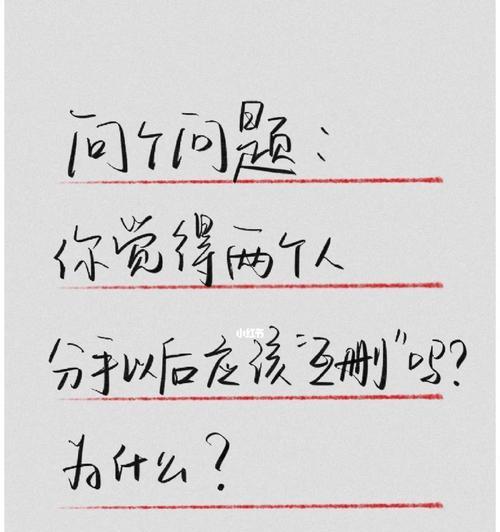 问个问题：
你觉得两个人
小红书
分手以后应该“互删”吗？
为什么？